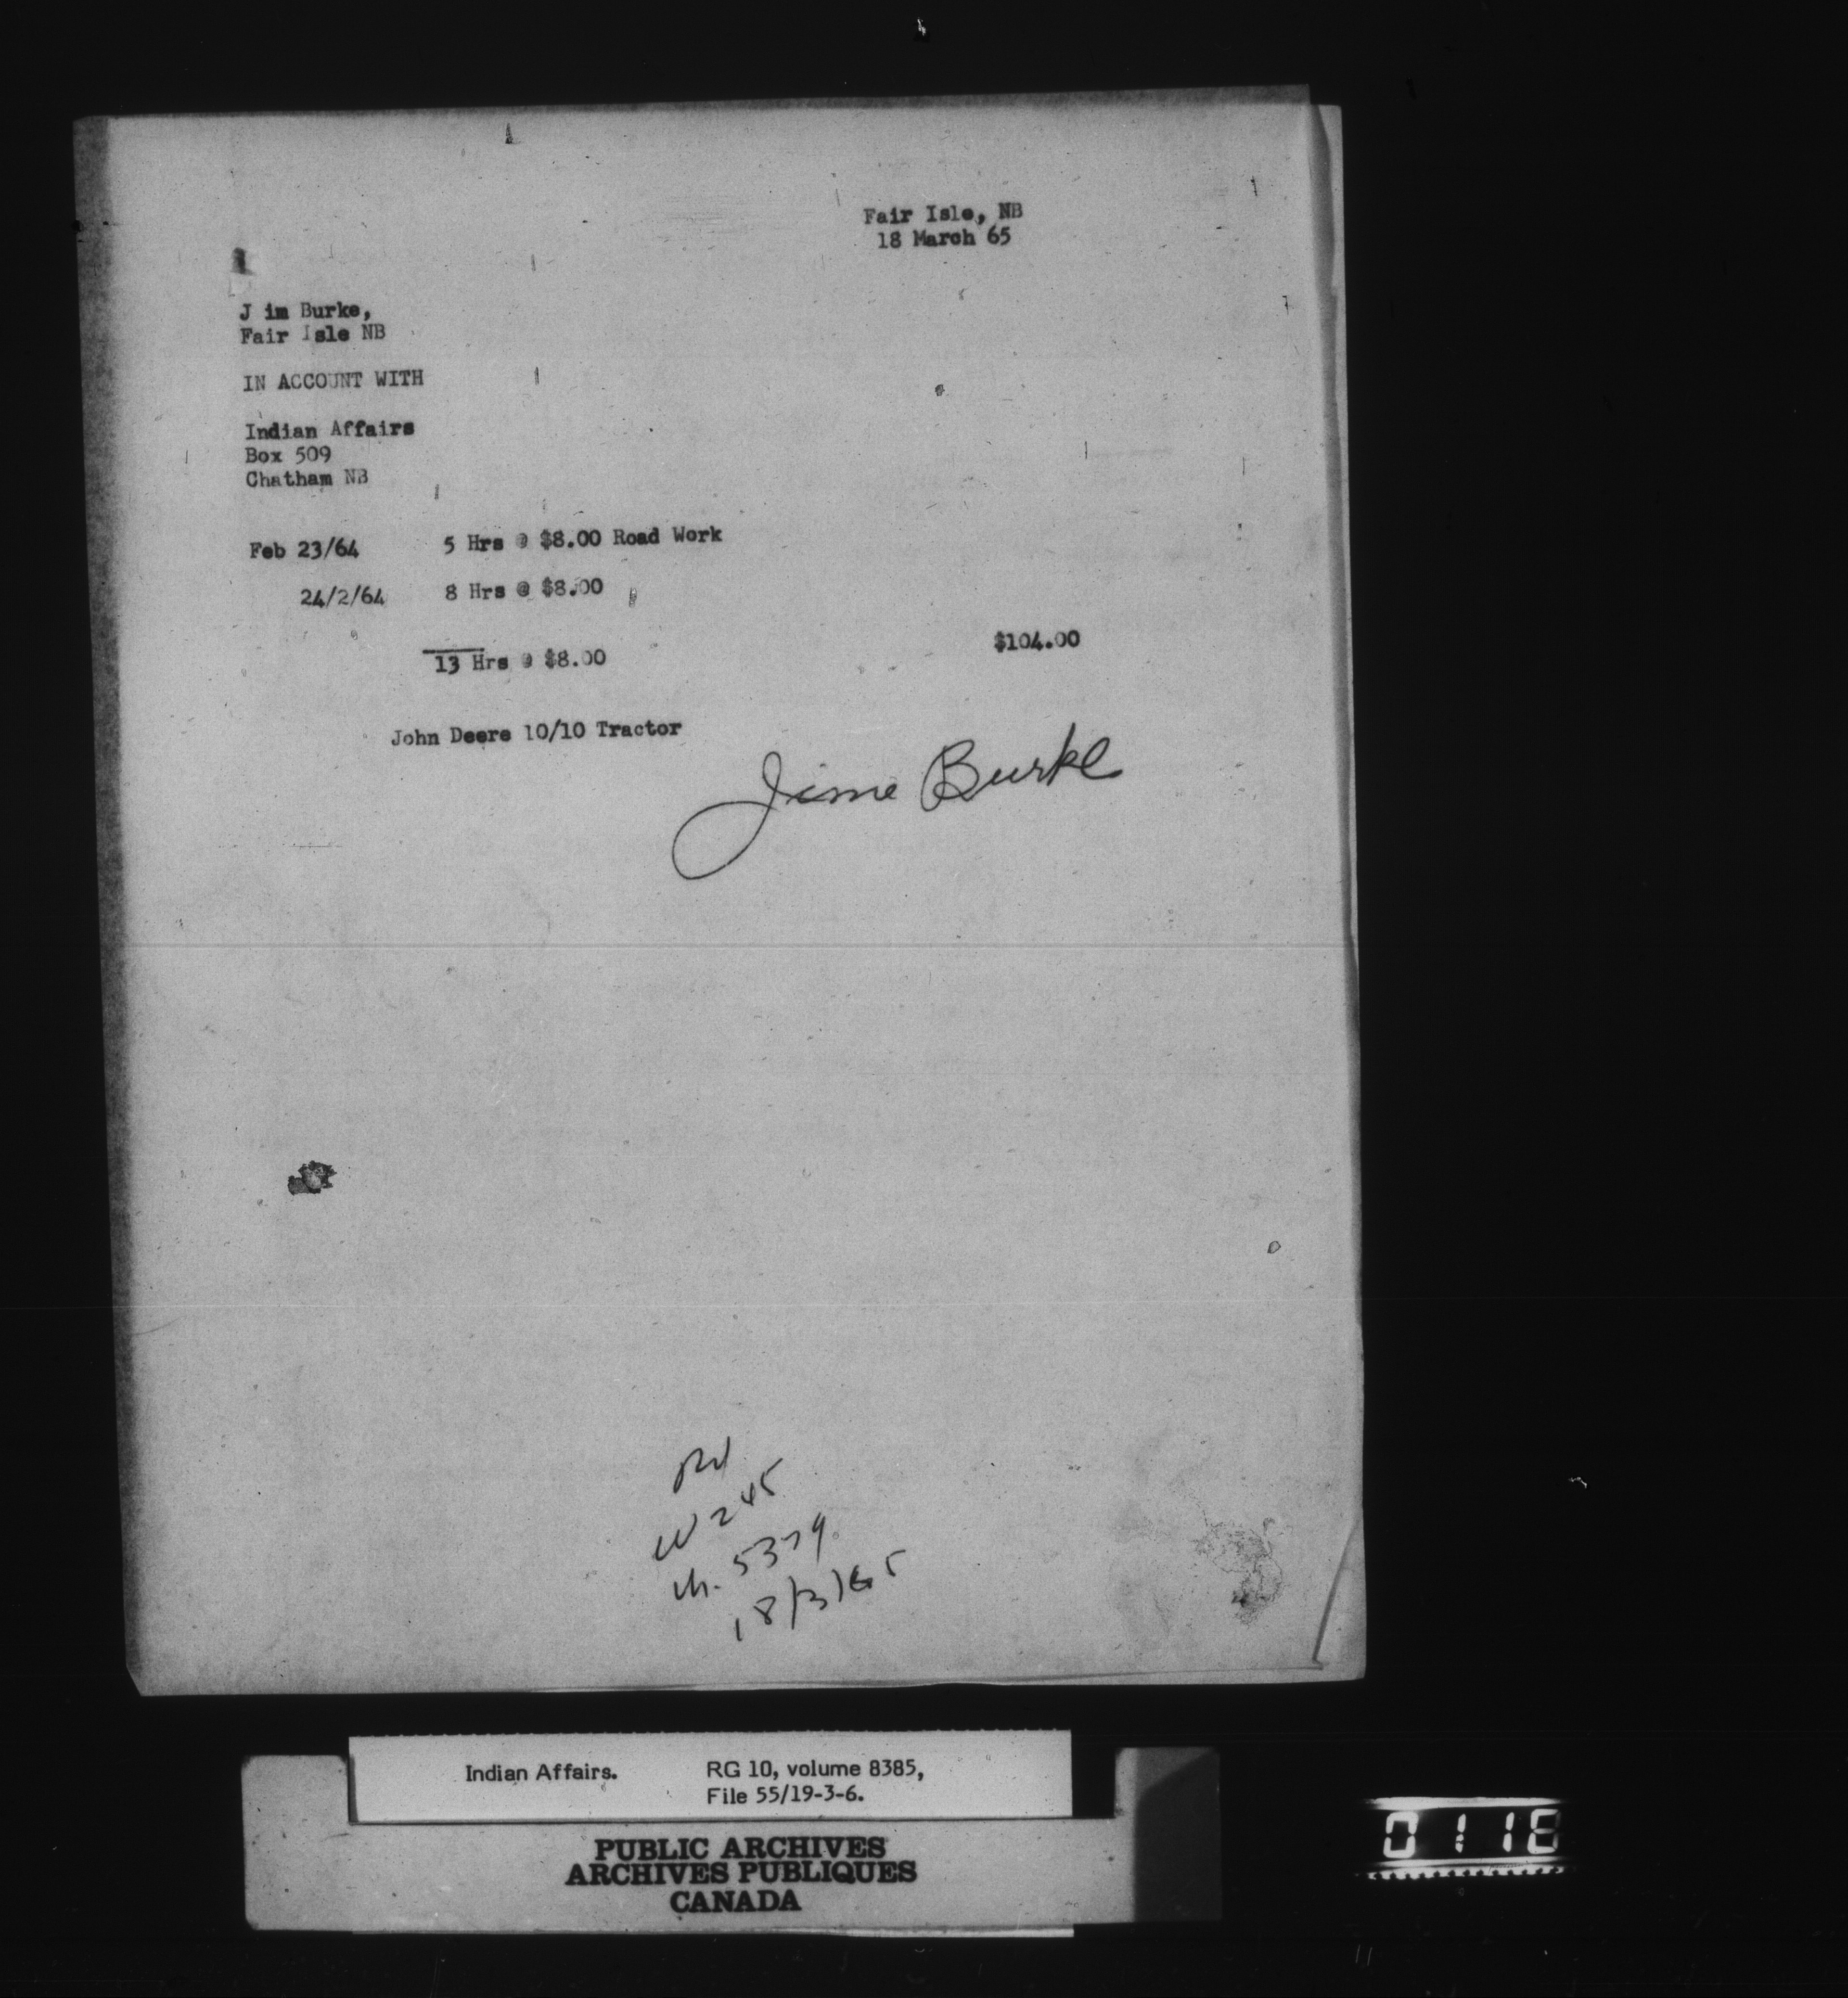 Fair Isle, NB
18 March 65
J im Burke,
Fair Isle NB
IN ACCOUNT WITH
Indian Affairs
Box 509
Chatham NB
Feb 23/64 5 Hrs @ $8.00 Road Work
24/2/64 8 Hrs @ $8.00
13 Hrs @ $8.00 $104.00
John Deere 10/10 Tractor
Jime Burke
Pd
W 245
ch. 5379
18/3/65
Indian Affairs. RG 10, volume 8385,
File 55/19-3-6.
PUBLIC ARCHIVES
ARCHIVES PUBLIQUES
CANADA